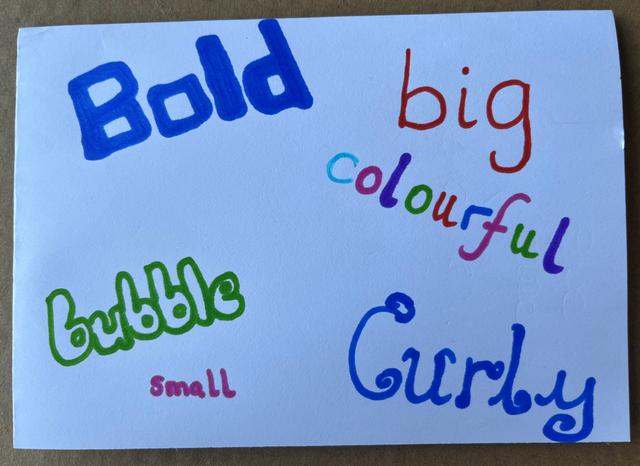 Bold
big
colourful
bubble
small
Curly